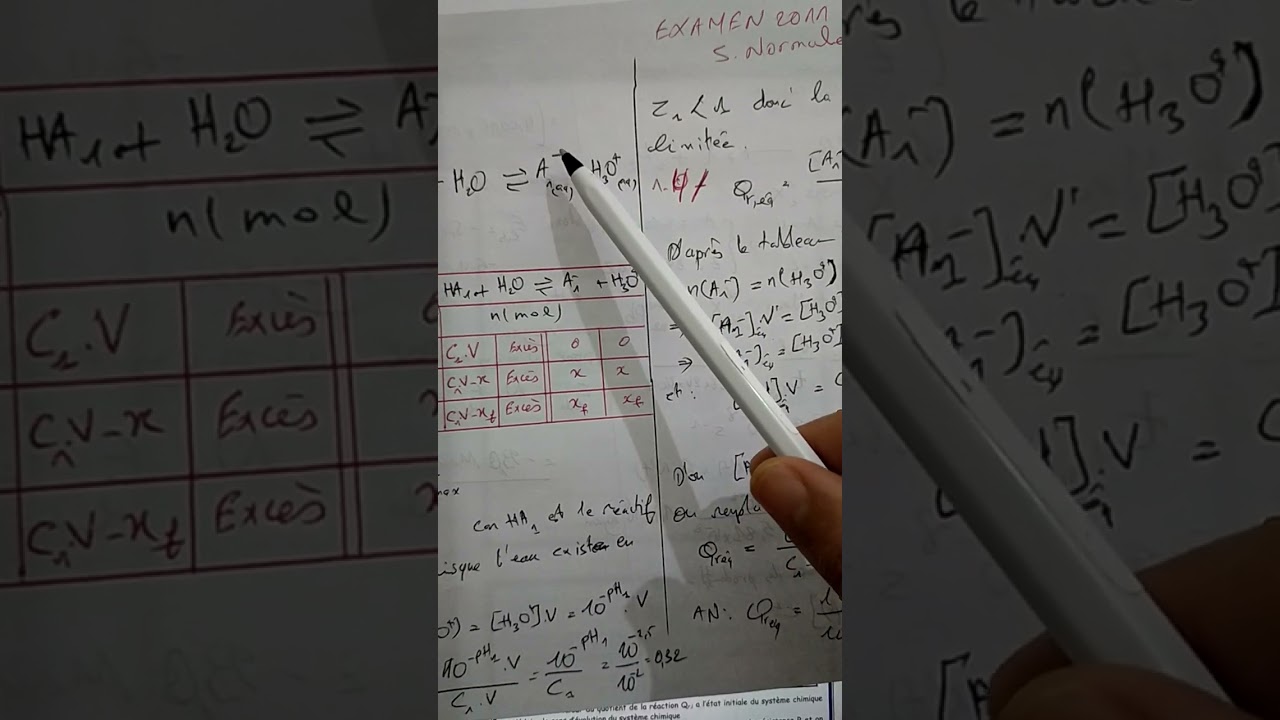 EXAMEN 2011
S. Normale
H2O ⇌ A1(aq)⁻ H3O⁺(aq)
HA1 + H2O ⇌ A1⁻ + H3O⁺
n(mol)
C1.V Excès 0 0
C1V-x Excès x x
C1V-xf Excès xf xf
max
car HA1 est le réactif
isque l'eau existe en
O⁺) = [H3O⁺].V = 10^-pH1 . V
10^-pH1 . V / C1 . V = 10^-pH1 / C1 = 10^-2,5 / 10^-2 = 0,32
τ1 < 1 donc la
limitée.
Qr,éq = [A1⁻
D'après le tableau
n(A1⁻) = n(H3O⁺)
⇒ [A1⁻]éq.V = [H3O⁺
⇒ [A1⁻]éq = [H3O⁺
et : ].V = C
D'où [
On rempla
Qr,éq = C1 -
AN : Qr,éq =
quotient de la réaction Qr,i a l'état initiale du système chimique
d'évolution du système chimique